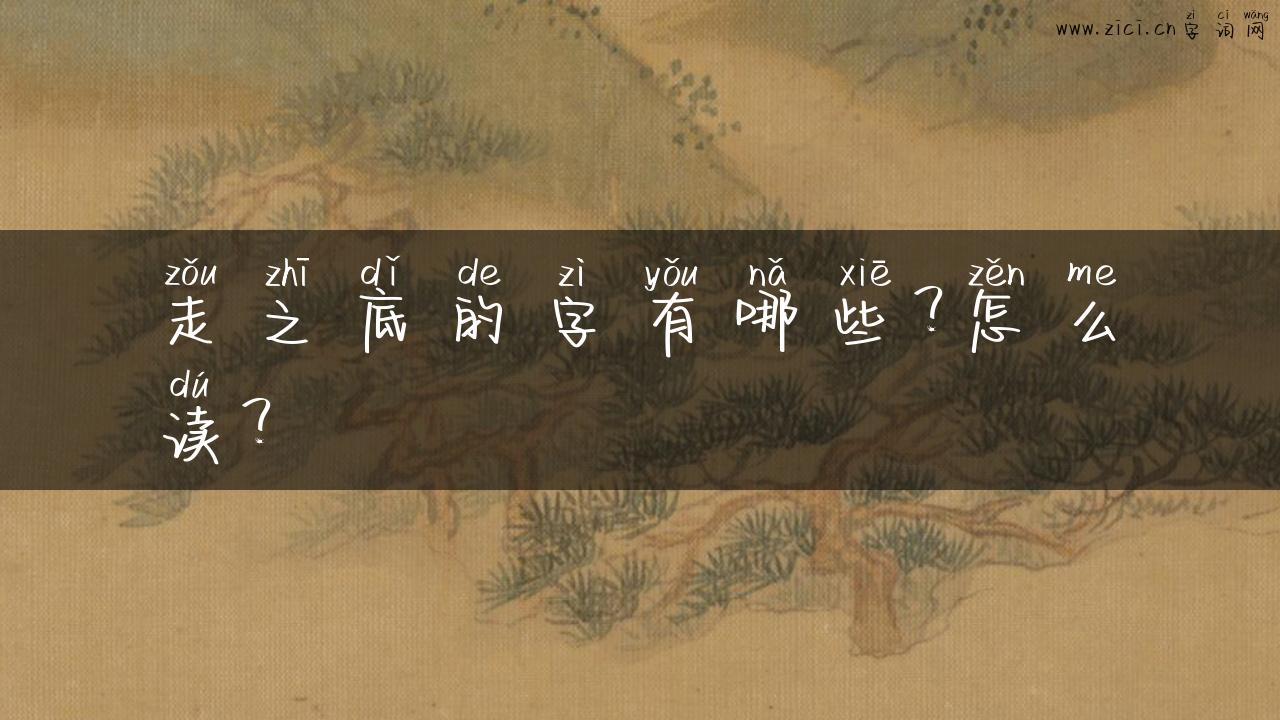 zì cí wǎng
www.zici.cn 字词网
zǒu zhī dǐ de zì yǒu nǎ xiē zěn me
走之底的字有哪些？怎么
dú
读？